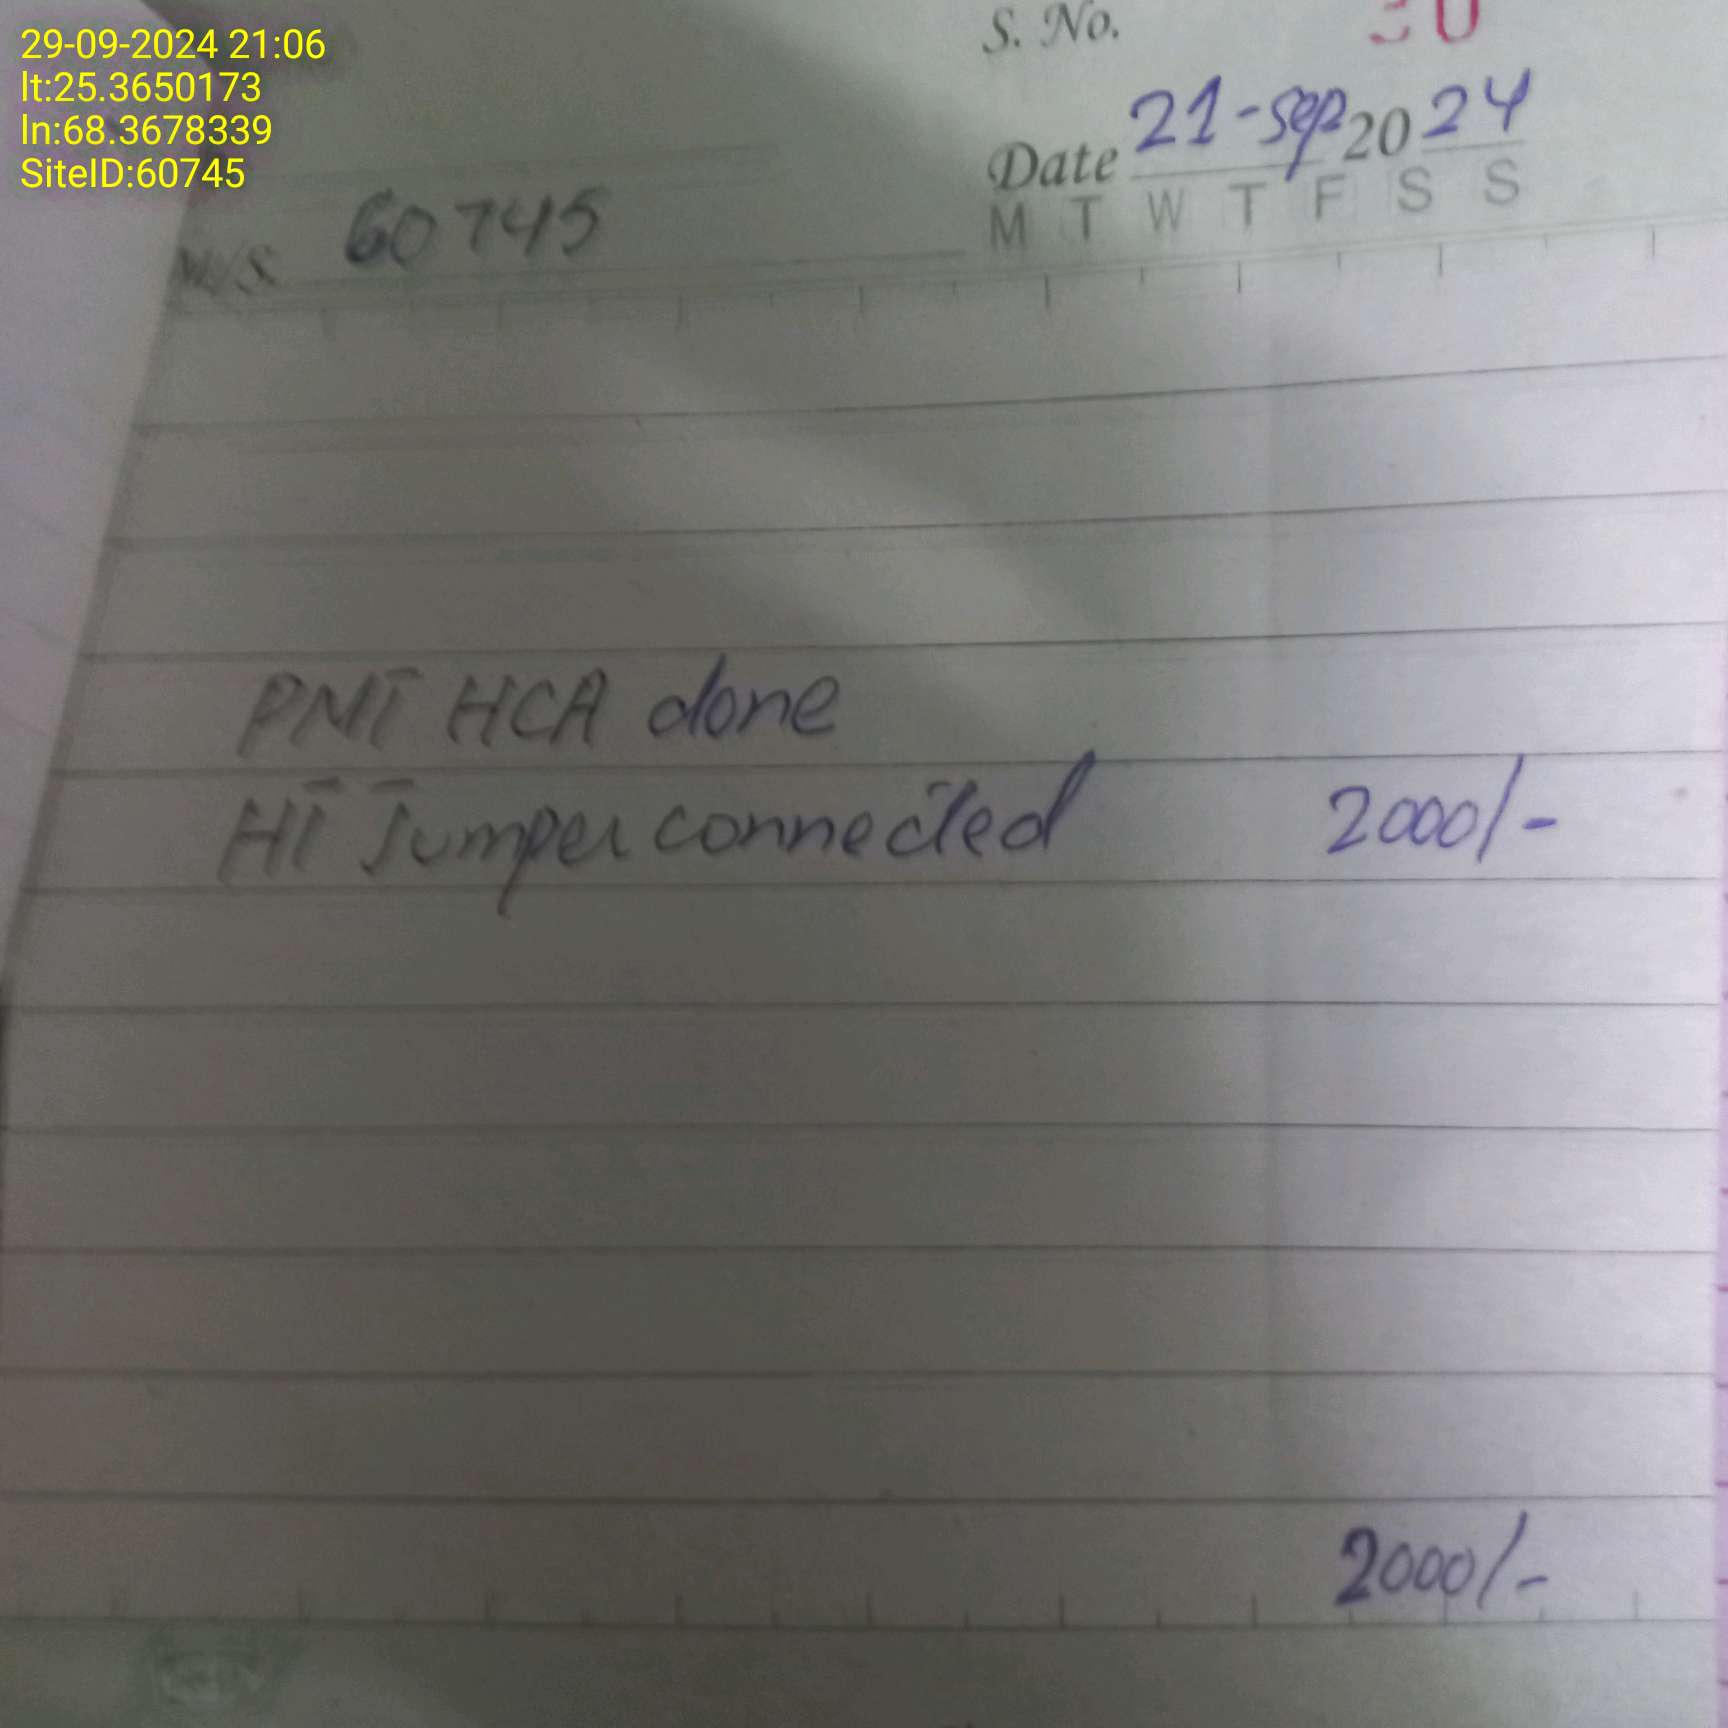 29-09-2024 21:06
lt:25.3650173
ln:68.3678339
SiteID:60745
S. No.
Date 21-Sep 2024
M T W T F S S
M/S. 60745
PMT HCA done
HT Jumper connected 2000/-
2000/-